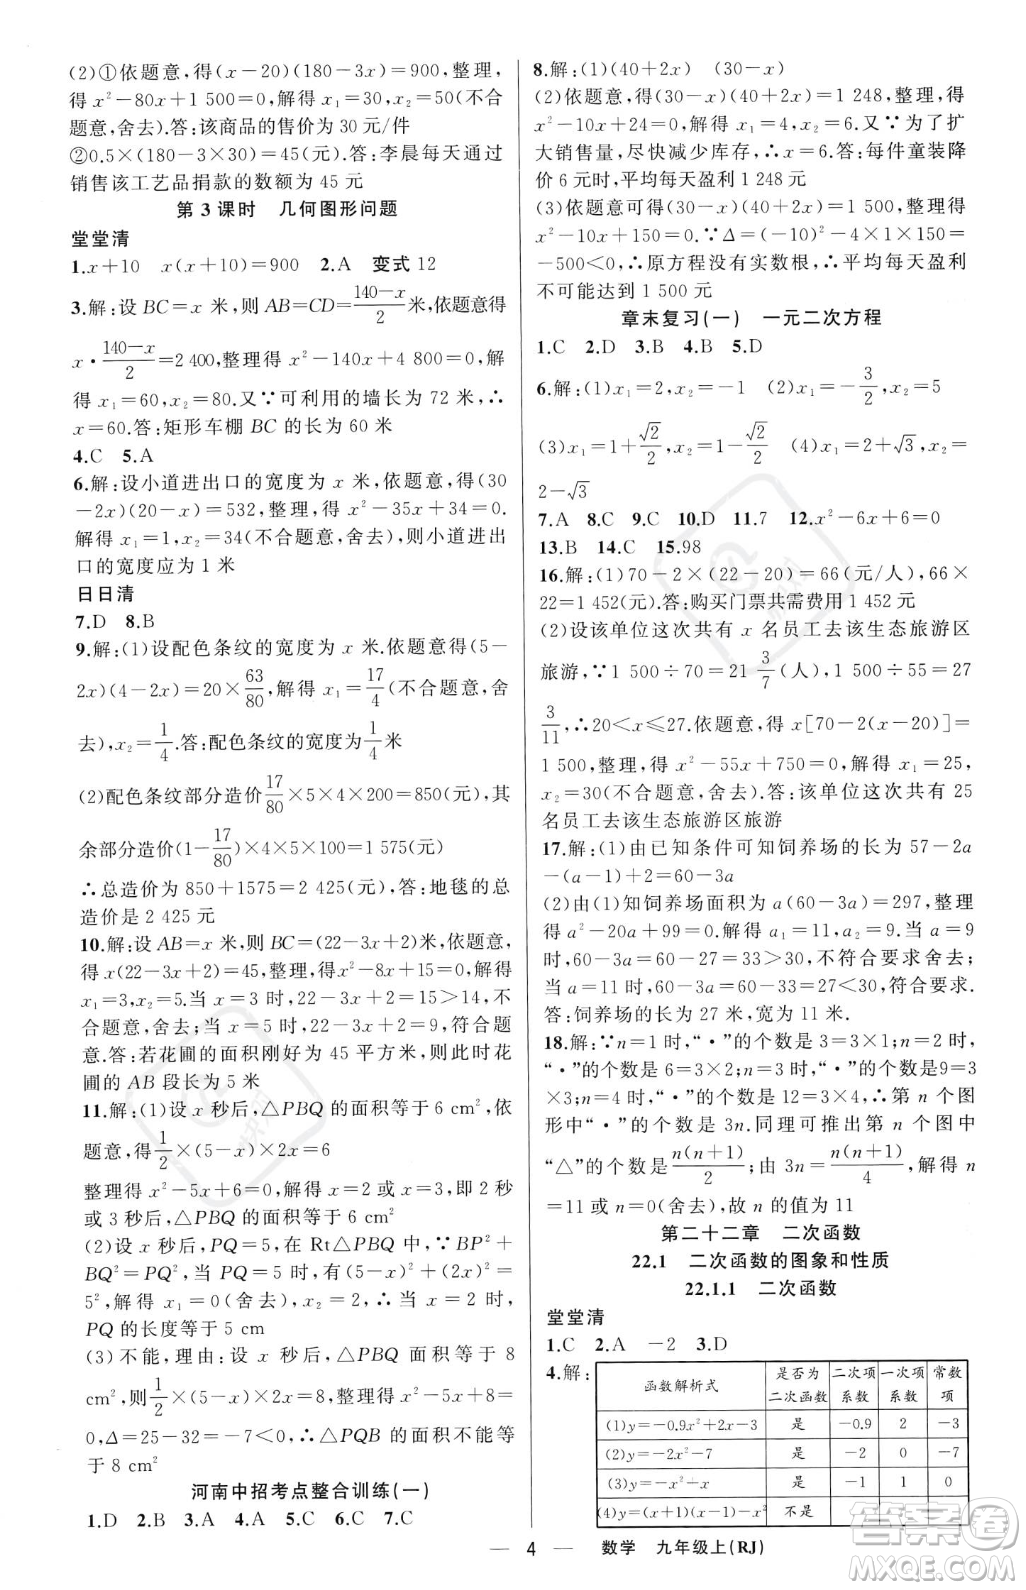 (2)①依题意,得(x-20)(180-3x)=900,整理,
得 x²-80x+1 500=0,解得 x₁=30,x₂=50(不合
题意,舍去).答:该商品的售价为 30 元/件
②0.5×(180-3×30)=45(元).答:李晨每天通过
销售该工艺品捐款的数额为 45 元
第 3 课时 几何图形问题
堂堂清
1.x+10 x(x+10)=900 2.A 变式 12
3.解:设 BC=x 米,则 AB=CD=(140-x)/2米,依题意得
x·(140-x)/2=2 400,整理得 x²-140x+4 800=0,解
得 x₁=60,x₂=80.又∵可利用的墙长为 72 米,∴
x=60.答:矩形车棚 BC 的长为 60 米
4.C 5.A
6.解:设小道进出口的宽度为 x 米,依题意,得(30
-2x)(20-x)=532,整理,得 x²-35x+34=0.
解得 x₁=1,x₂=34(不合题意,舍去).答:小道进出
口的宽度应为 1 米
日日清
7.D 8.B
9.解:(1)设配色条纹的宽度为 x 米.依题意得(5-
2x)(4-2x)=20×63/80,解得 x₁=17/4(不合题意,舍
去),x₂=1/4.答:配色条纹的宽度为1/4米
(2)配色条纹部分造价17/80×5×4×200=850(元),其
余部分造价(1-17/80)×4×5×100=1 575(元)
∴总造价为 850+1575=2 425(元),答:地毯的总
造价是 2 425 元
10.解:设 AB=x 米,则 BC=(22-3x+2)米,依题意,
得 x(22-3x+2)=45,整理,得 x²-8x+15=0,解得
x₁=3,x₂=5.当 x=3 时,22-3x+2=15>14,不
合题意,舍去;当 x=5 时,22-3x+2=9,符合题
意.答:若花圃的面积刚好为 45 平方米,则此时花
圃的 AB 段长为 5 米
11.解:(1)设 x 秒后,△PBQ 的面积等于 6 cm²,依
题意得1/2×(5-x)×2x=6
整理得 x²-5x+6=0,解得 x₁=2,x₂=3,即 2 秒
或 3 秒后,△PBQ 的面积等于 6 cm²
(2)设 x 秒后,PQ=5,在 Rt△PBQ 中,∵BP²+
BQ²=PQ²,∴(5-x)²+(2x)²=
5²,解得 x₁=0(舍去),x₂=2,∴当 x=2 时,
PQ 的长度等于 5 cm
(3)不能,理由:设 x 秒后,△PBQ 的面积等于 8
cm²,则1/2×(5-x)×2x=8,整理得 x²-5x+8=
0,Δ=25-32=-7<0,∴△PQB 的面积不能等
于 8 cm²
河南中招考点整合训练(一)
1.D 2.B 3.A 4.C 5.A 6.C 7.C
8.解:(1)(40+2x) (30-x)
(2)依题意,得(30-x)(40+2x)=1 248,整理,得
x²-10x+24=0,解得 x₁=4,x₂=6.又∵为了扩
大销售量,尽快减少库存,∴x=6.答:每件童装降
价 6 元时,平均每天盈利 1 248 元
(3)依题意可得(30-x)(40+2x)=1 500,整理得
x²-10x+150=0.∵Δ=(-10)²-4×1×150=
-500<0,∴原方程没有实数根,∴平均每天盈利
不可能达到 1 500 元
章末复习(一) 一元二次方程
1.C 2.D 3.B 4.B 5.D
6.解:(1)x₁=2,x₂=-1 (2)x₁=-3/2,x₂=5
(3)x₁=1+√2/2,x₂=1-√2/2 (4)x₁=2+√3,x₂=
2-√3
7.A 8.C 9.C 10.D 11.7 12.x²-6x+6=0
13.B 14.C 15.98
16.解:(1)70-2×(22-20)=66(元/人),66×
22=1 452(元).答:购买门票共需费用 1 452 元
(2)设该单位这次共有 x 名员工去该生态旅游区
旅游,∵1 500÷70=21 3/7(人),1 500÷55=27
3/11,∴20<x≤27.依题意,得 x[70-2(x-20)]=
1 500,整理,得 x²-55x+750=0.解得 x₁=25,
x₂=30(不合题意,舍去).答:该单位这次共有 25
名员工去该生态旅游区旅游
17.解:(1)由已知条件可知饲养场的长为 57-2a
-(a-1)+2=60-3a
(2)由(1)知饲养场面积为 a(60-3a)=297,整理,
得 a²-20a+99=0.解得 a₁=11,a₂=9.当 a=9
时,60-3a=60-27=33>27,不符合要求舍去;
当 a=11 时,60-3a=60-33=27,符合要求.
答:饲养场的长为 27 米,宽为 11 米.
18.解:∵n=1 时,“•”的个数是 3=3×1;n=2 时,
“•”的个数是 6=3×2;n=3 时,“•”的个数是9=3
×3;n=4 时,“•”的个数是 12=3×4,∴第 n 个图
形中“•”的个数是 3n.同理可推出第 n 个图中
“△”的个数是n(n+1)/2;由 3n=n(n+1)/4,解得 n
=11 或 n=0(舍去),故 n 的值为 11
第二十二章 二次函数
22.1 二次函数的图象和性质
22.1.1 二次函数
堂堂清
1.C 2.A -2 3.D
4.解:
函数解析式 是否为二次函数 二次项系数 一次项系数 常数项
(1)y=-0.9x²+2x-3 是 -0.9 2 -3
(2)y=-2x²-7 是 -2 0 -7
(3)y=-x²+x 是 -1 1 0
(4)y=(x+1)(x-1)-x² 不是
4 数学 九年级上(RJ)
答案圈
MXQE.COM